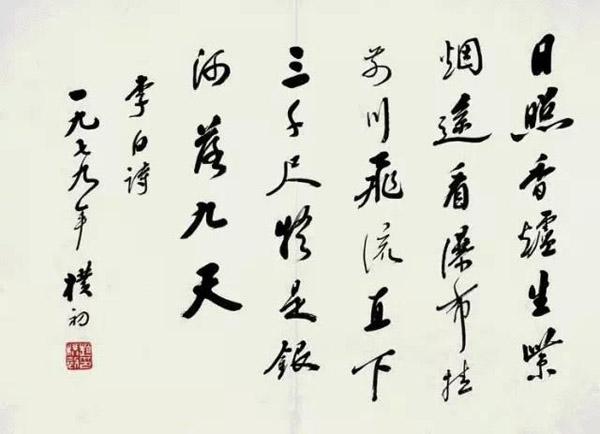 日照香爐生紫
烟遙看瀑布挂
前川飛流直下
三千尺疑是銀
河落九天
李白詩
一九七九年 樸初